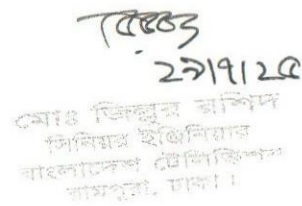 ২৯/৭/২৫
মোঃ জিল্লুর রশিদ
সিনিয়র ইঞ্জিনিয়ার
বাংলাদেশ টেলিভিশন
রামপুরা, ঢাকা।